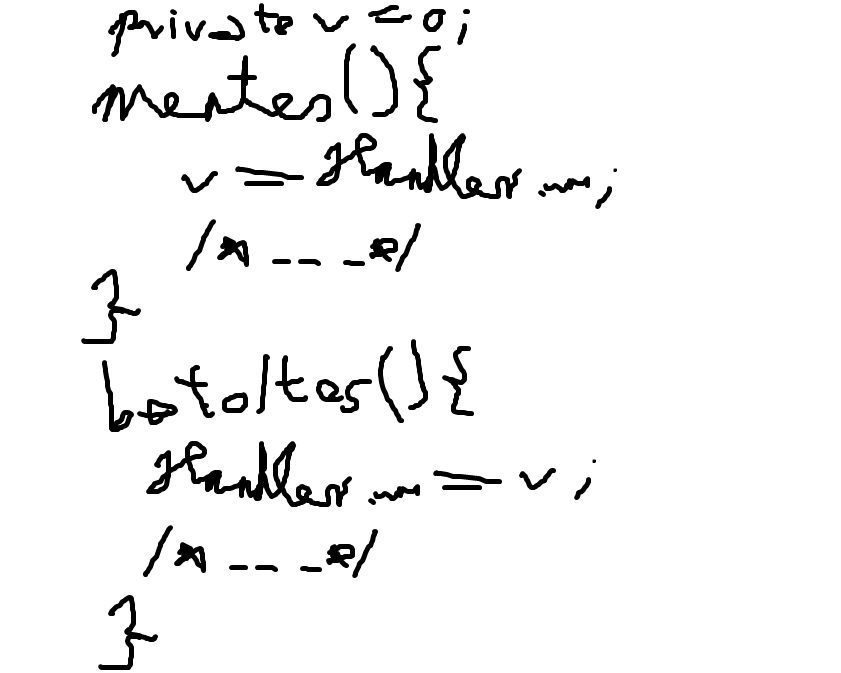 private v = 0;
mentes(){
v = Handler.m;
/* -- - */
}
betoltes(){
Handler.m = v;
/* -- - */
}